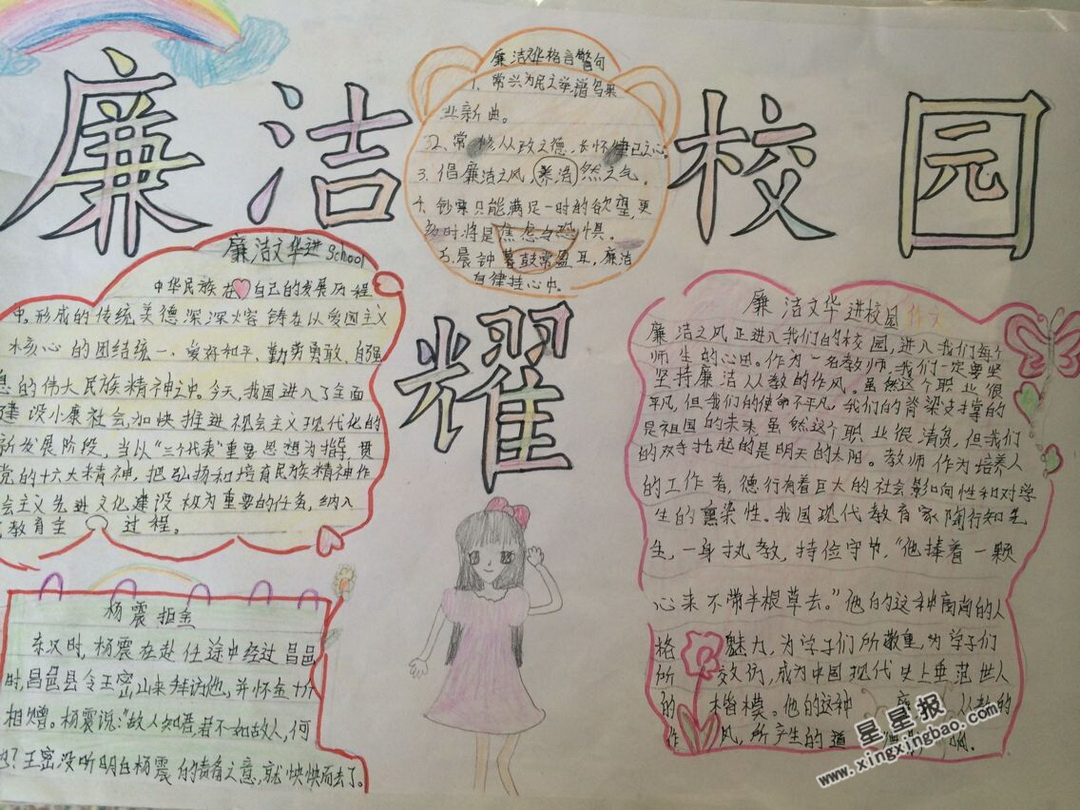 廉洁校园
耀
廉洁文华格言警句
1、常兴为民之举,谱名果
业新曲。
2、常修从政之德,长怀律己之心
3、倡廉洁之风,养浩然之气。
4、钞票只能满足一时的欲望,更
多时将是焦虑与恐惧。
5、晨钟暮鼓常盈耳,廉洁
自律挂心中。
廉洁文华进School
中华民族在自己的发展历程
中,形成的传统美德深深熔铸在以爱国主义
核心的团结统一、爱好和平、勤劳勇敢、自强
息的伟大民族精神之中。今天,我国进入了全面
建设小康社会,加快推进社会主义现代化的
新发展阶段,当以“三个代表”重要思想为指导,贯
党的十六大精神,把弘扬和培育民族精神作
会主义先进文化建设极为重要的任务,纳入
教育全过程。
杨震拒金
东汉时,杨震在赴任途中经过昌邑
时,昌邑县令王密,山来拜访他,并怀金十斤
相赠。杨震说:“故人知君,君不知故人,何
也?王密没听明白杨震的责备之意,就怏怏而去了。
廉洁文华进校园作文
廉洁之风正进入我们的校园,进入我们每个
师生的心田。作为一名教师,我们一定要坚
坚持廉洁从教的作风。虽然这个职业很
平凡,但我们的使命不平凡,我们的脊梁支撑的
是祖国的未来。虽然这个职业很清贫,但我们
的双手托起的是明天的太阳。教师作为培养人
的工作者,德行有着巨大的社会影响性和对学
生的熏染性。我国现代教育家陶行知先
生,一身执教,持俭守节,“他捧着一颗
心来不带半根草去。”他的这种高尚的人
格魅力,为学子们所敬重,为学子们
所效仿,成为中国现代史上垂范世人
的楷模。他的这种廉从教的
作风,所产生的道
星星报
www.xingxingbao.com